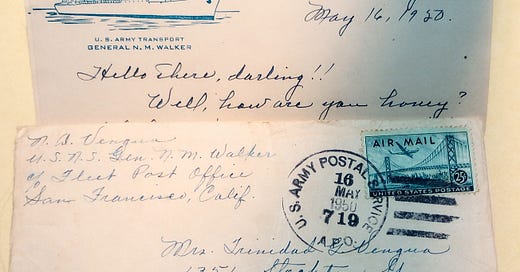 May 16, 1950.
U. S. ARMY TRANSPORT
GENERAL N. M. WALKER
Hello there, darling!!
Well, how are you honey?
N. B. Vengua
U.S.N.S. Gen. N.M. Walker
c/o Fleet Post Office
San Francisco, Calif.
U. S. ARMY POSTAL SERVICE
16
MAY
1950
719
A.P.O.
AIR MAIL
25¢
UNITED STATES POSTAGE
Mrs. Trinidad Vengua
Stockton St.